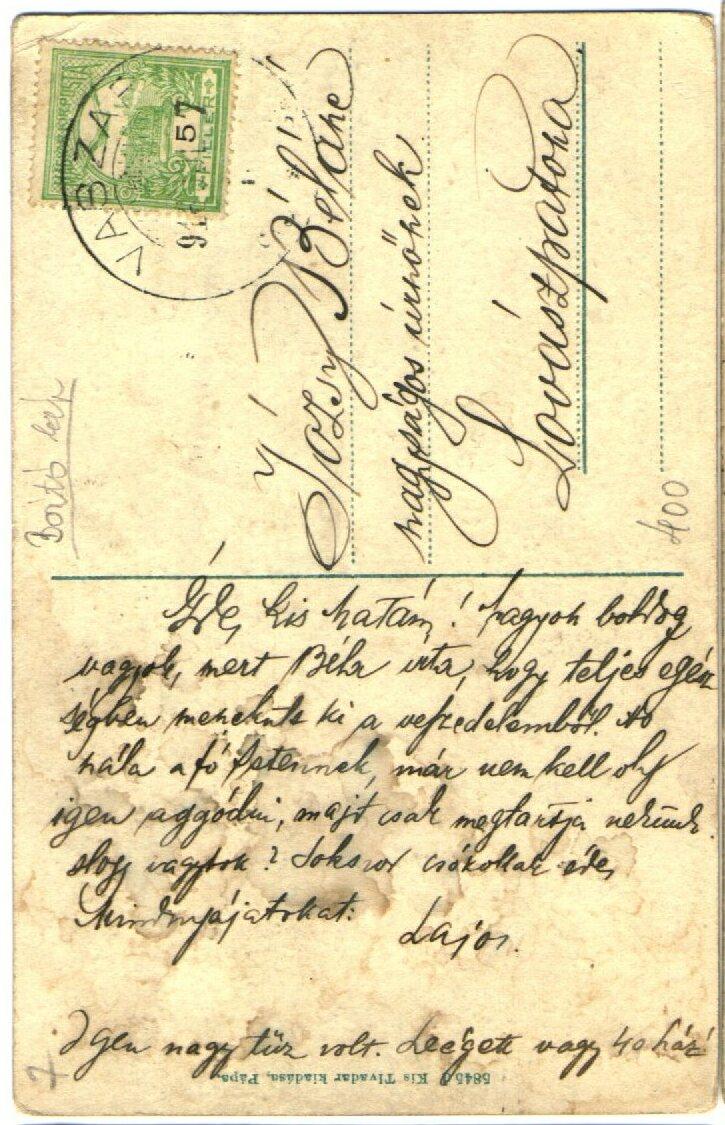 MAGYAR
FILLÉR
5
VASZAR
91
57
Józsy Béláné
nagyságos úrnőnek
Lovászpatona
Borító lap
400
Éde, kis Katám! Nagyon boldog
vagyok, mert Béla írta, hogy teljes egés
ségben menekült ki a veszedelemből.
hála a jó Istennek, már nem kell oly
igen aggódni, majd csak megtartja nekünk.
Hogy vagytok? Sokszor csókollak édes
Mindnyájatokat:
Lajos.
Igen nagy tűz volt. Leégett vagy 40 ház!
7
Kis Tivadar kiadása, Pápa.